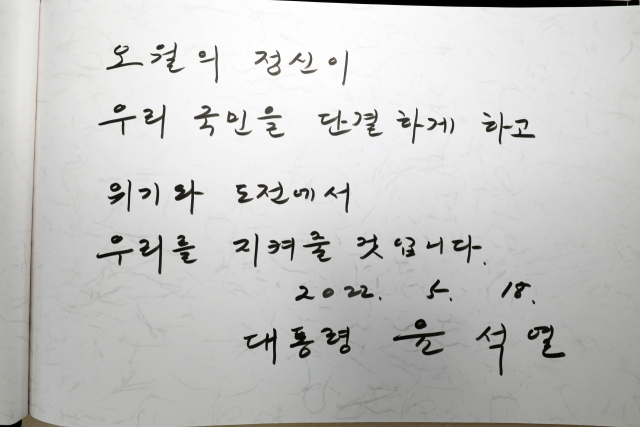 오월의 정신이
우리 국민을 단결하게 하고
위기와 도전에서
우리를 지켜줄 것입니다.
2022. 5. 18.
대통령 윤석열